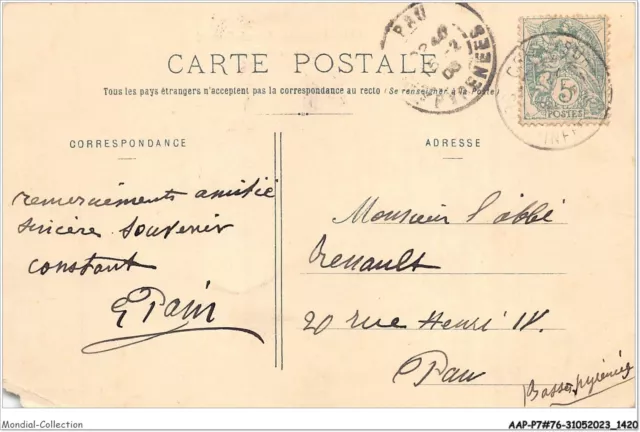 CARTE POSTALE
Tous les pays étrangers n'acceptent pas la correspondance au recto (Se renseigner à la Poste)
CORRESPONDANCE
remerciements amitié
sincère souvenir
constant
E Pain
ADRESSE
Monsieur l'abbé
Renault
20 rue Henri IV.
Pau
Basses pyrénées
PAU
PYRENEES
5
POSTES
INF
Mondial-Collection
AAP-P7#76-31052023_1420